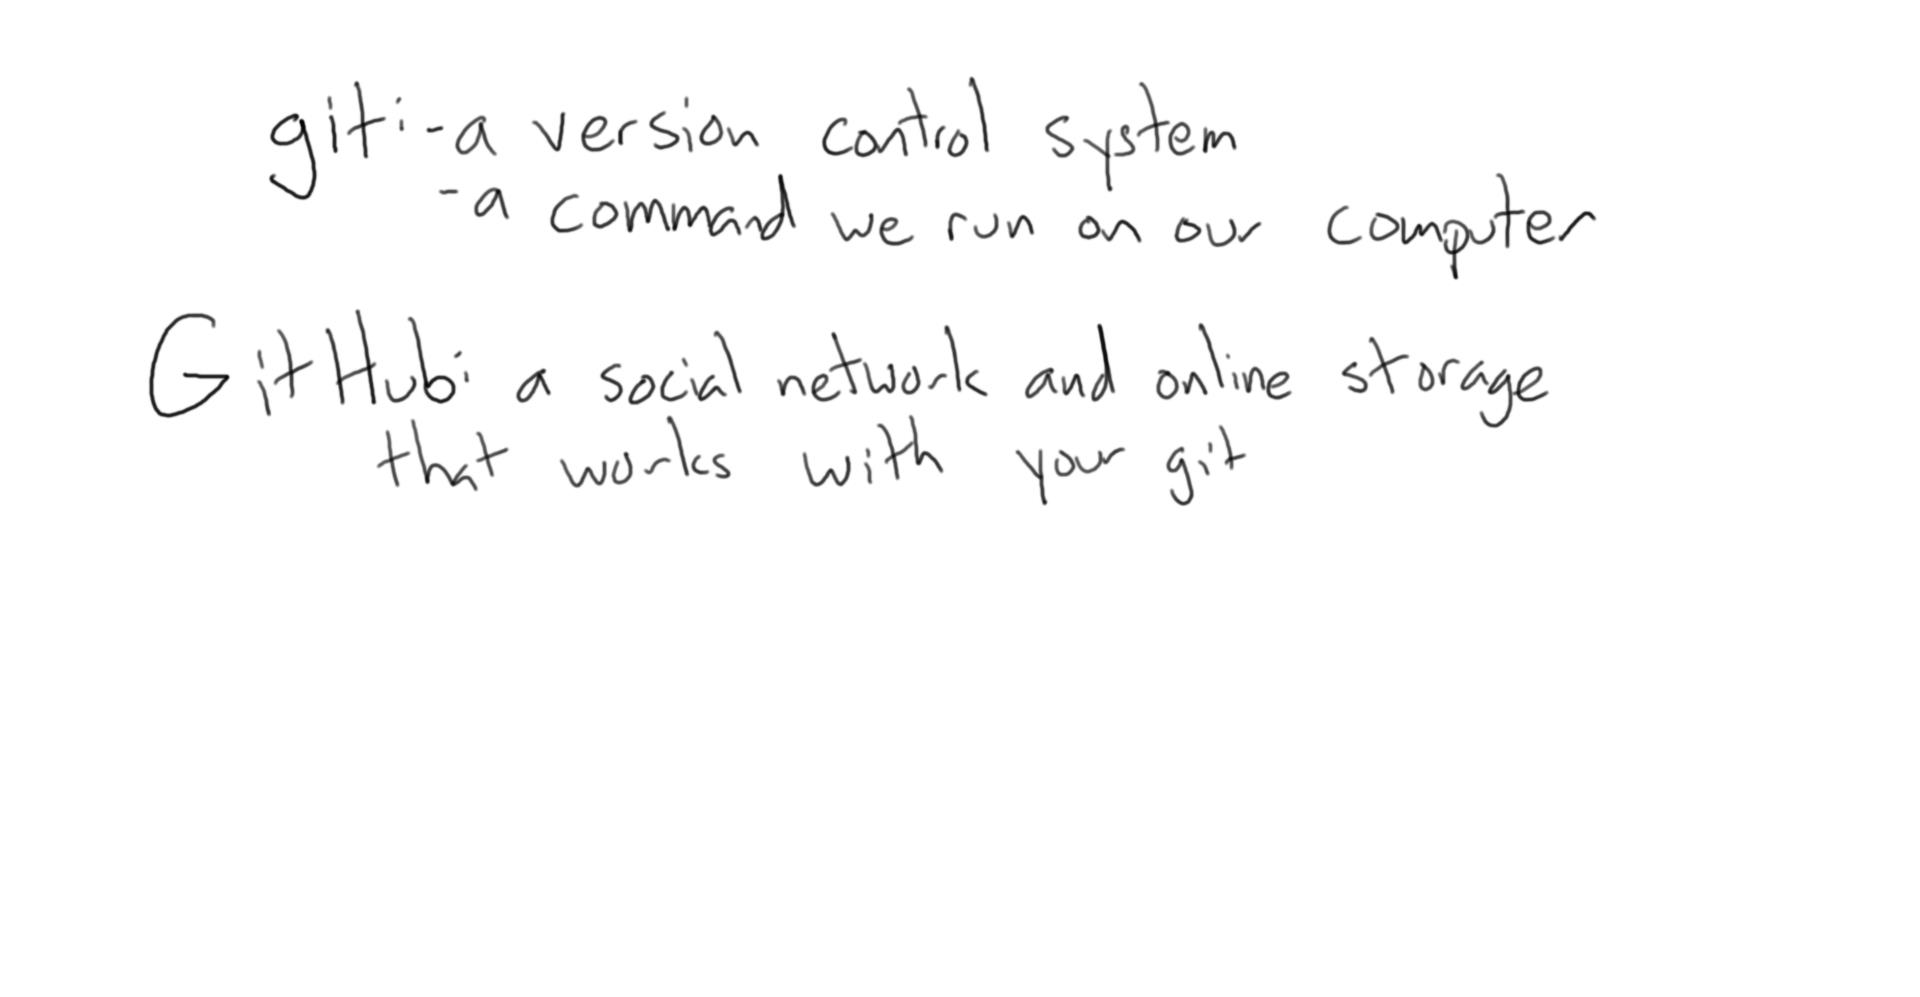 git: -a version control system
-a command we run on our computer
GitHub: a social network and online storage
that works with your git